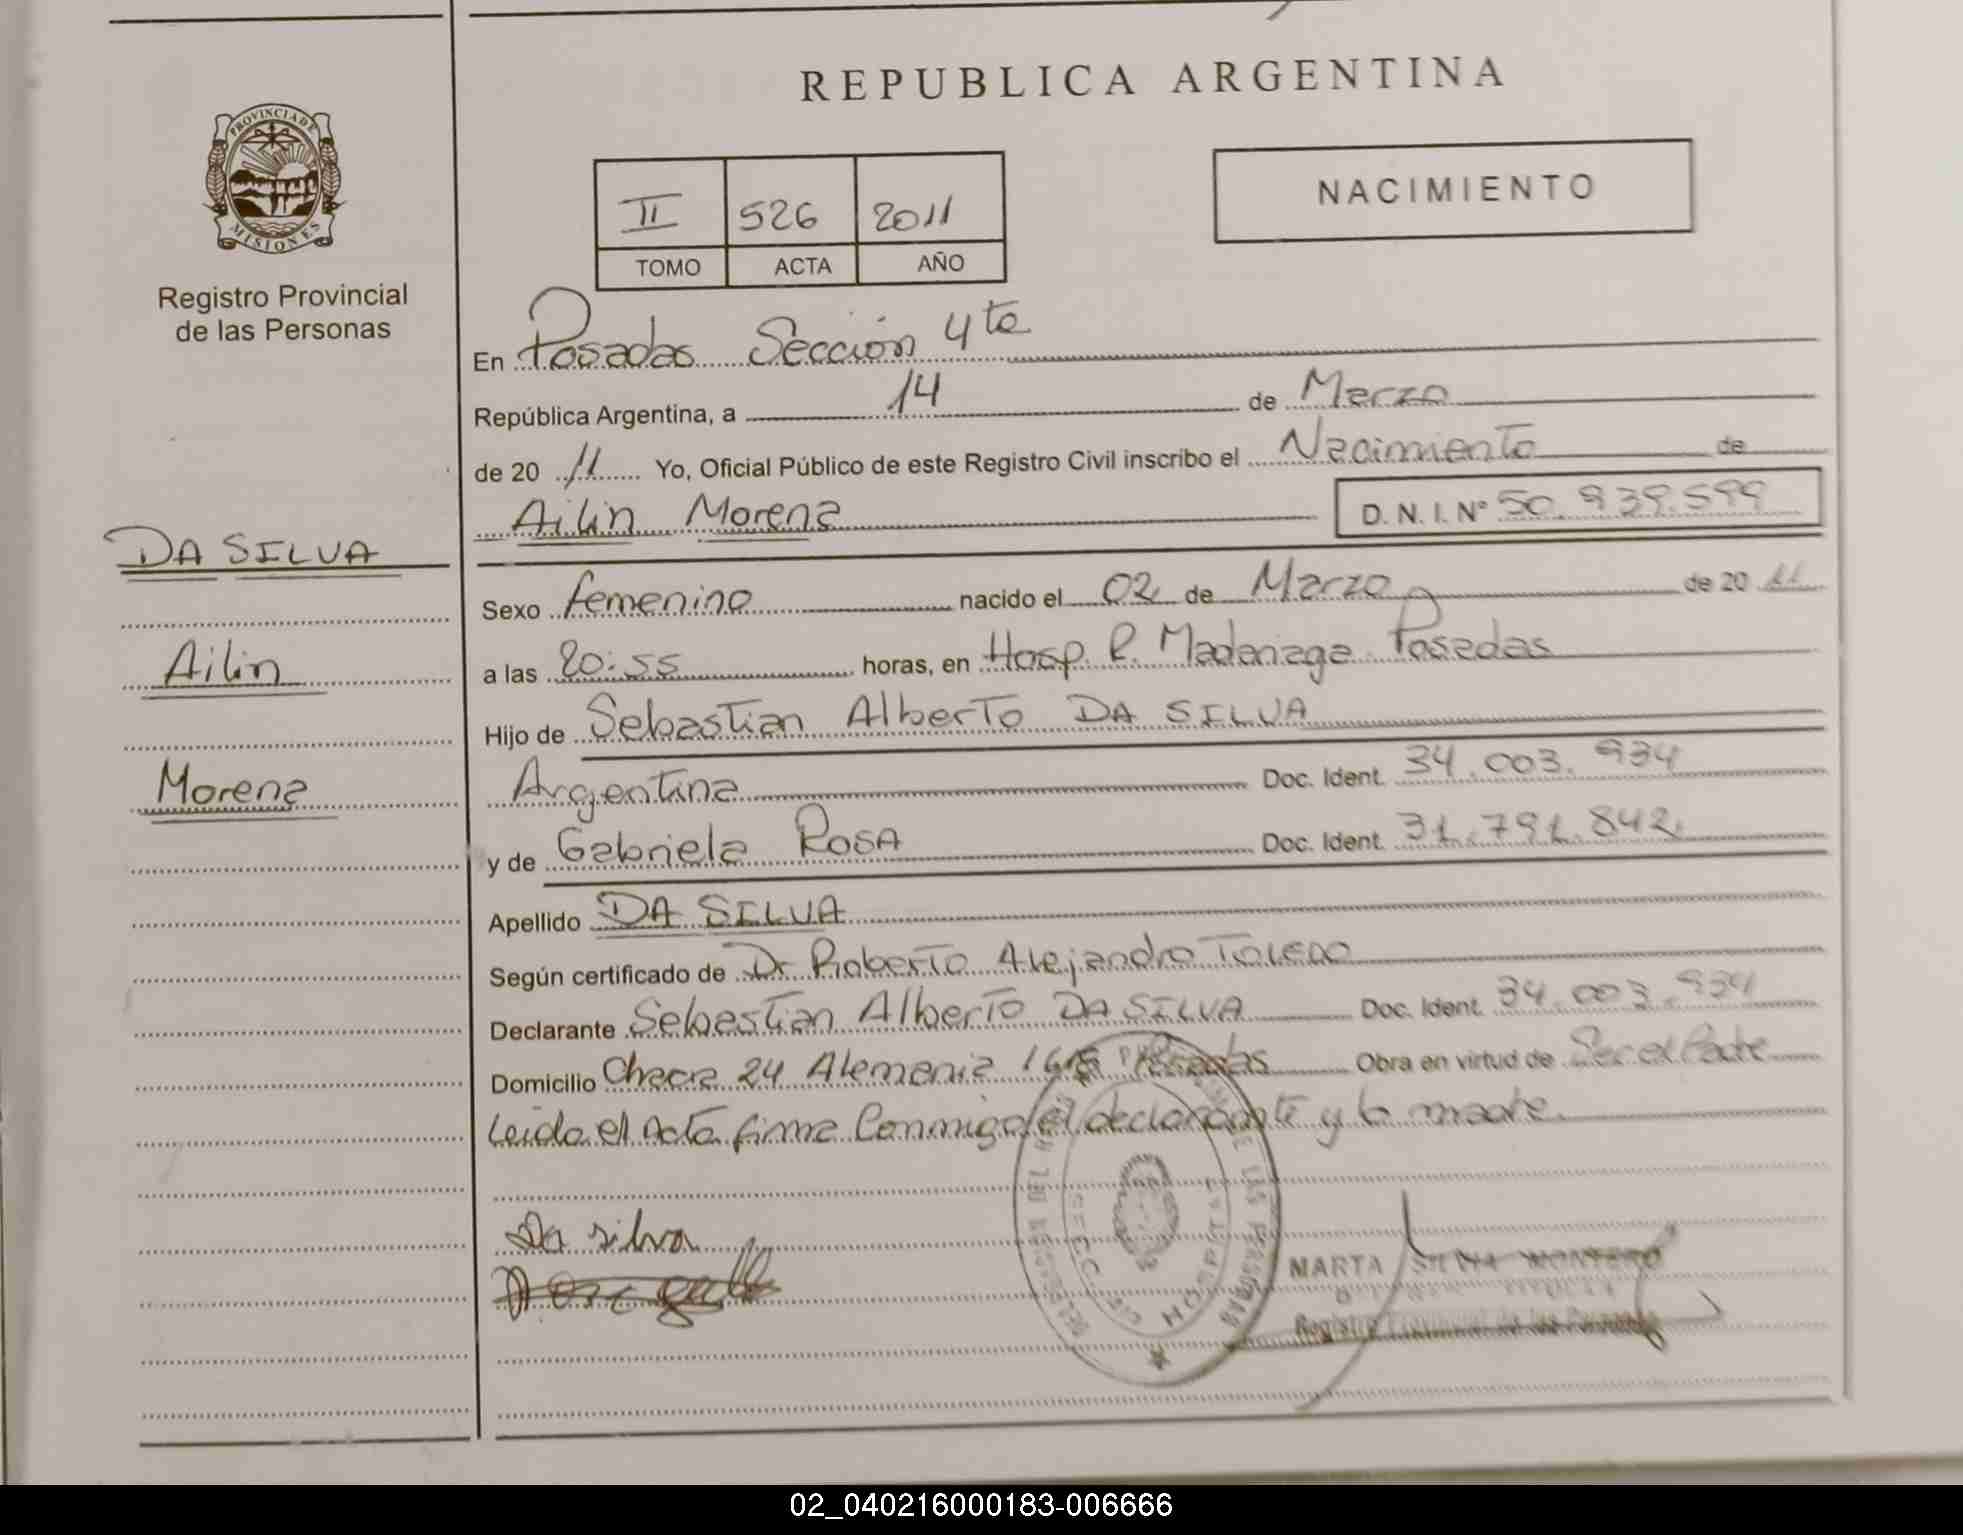 REPUBLICA ARGENTINA
PROVINCIA DE
MISIONES
Registro Provincial
de las Personas
II 526 2011
TOMO ACTA AÑO
NACIMIENTO
En Posadas Sección 4ta
República Argentina, a 14 de Marzo
de 20 11 Yo, Oficial Público de este Registro Civil inscribo el Nacimiento de
Ailin Morena D. N. I. Nº 50.939.599
DA SILVA
Ailin
Morena
Sexo femenino nacido el 02 de Marzo de 20 11
a las 20:55 horas, en Hosp R. Madariaga Posadas
Hijo de Sebastian Alberto DA SILVA
Argentina Doc. Ident. 34.003.934
y de Gabriela ROSA Doc. Ident. 31.791.842
Apellido DA SILVA
Según certificado de Dr Roberto Alejandro TOLEDO
Declarante Sebastian Alberto DA SILVA Doc. Ident. 34.003.934
Domicilio Chacra 24 Alemania Posadas Obra en virtud de Ser el Padre
Leida el Acta firma Conmigo el declarante y la madre.
Da silva
MARTA SILVIA MONTERO
Registro Provincial de las Personas
02_040216000183-006666